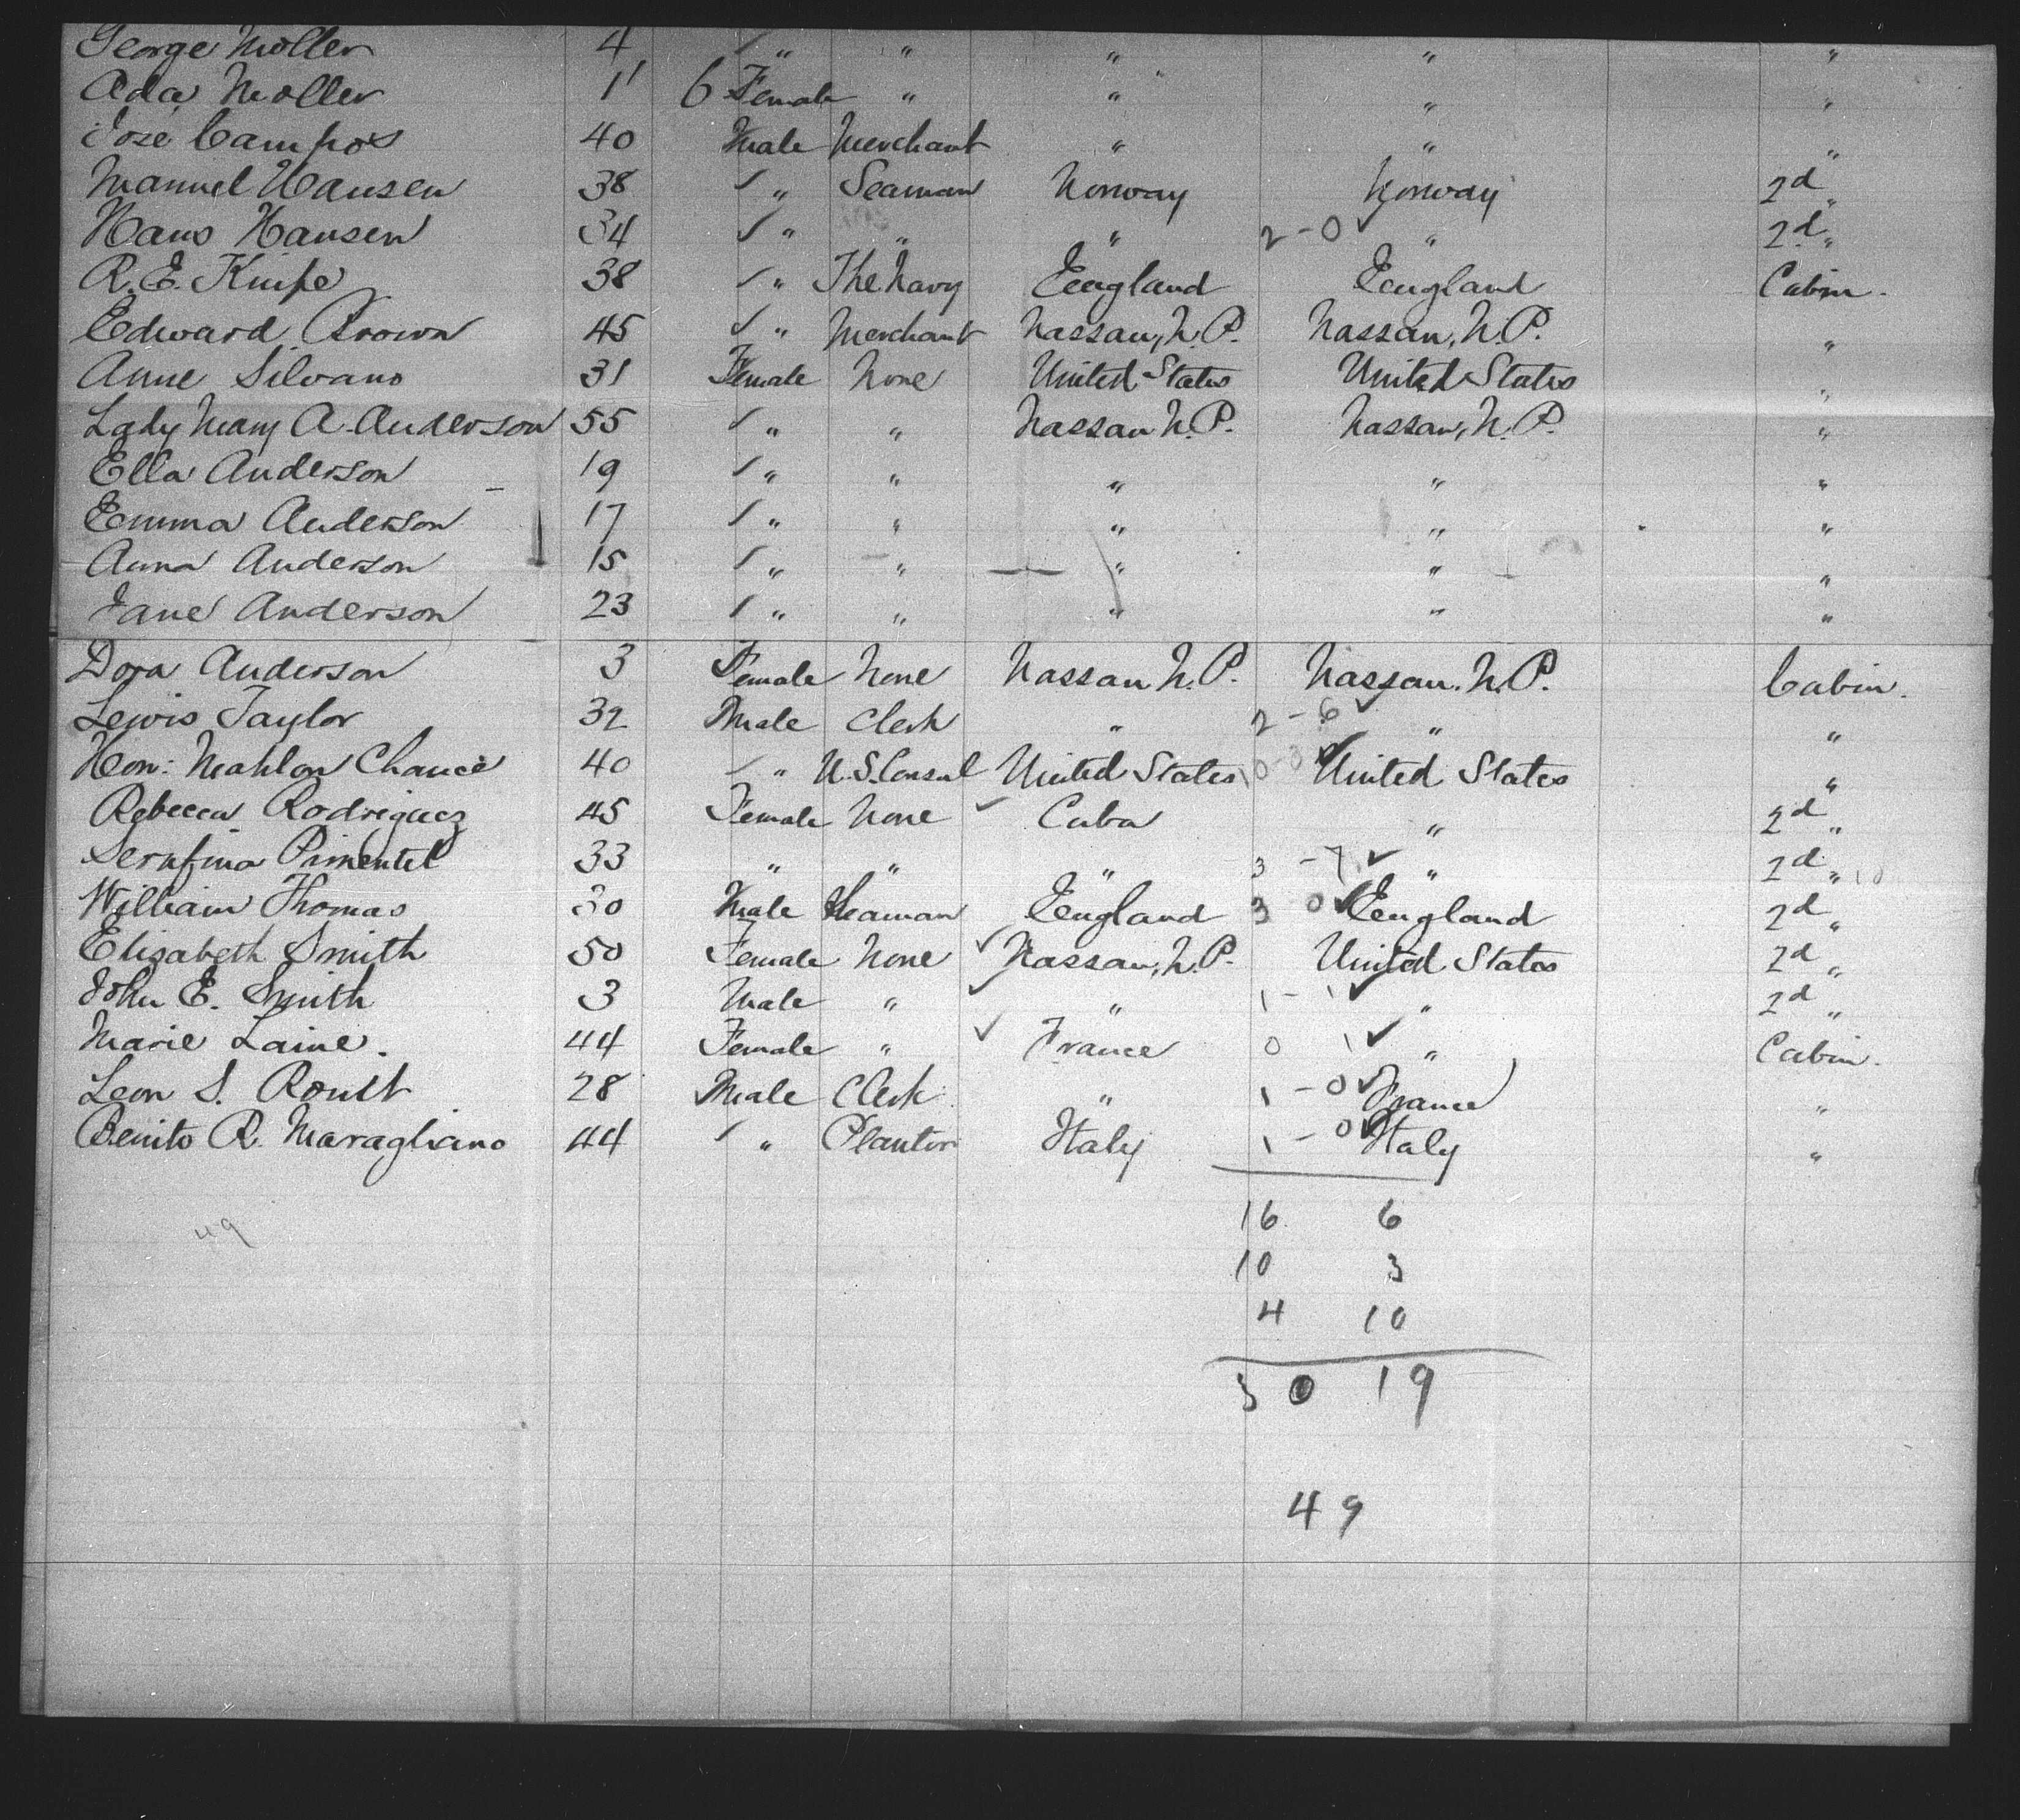 George Moller 4 " " " " "
Ada Moller 1 6 Female " " " "
José Campos 40 Male Merchant " " "
Manuel Hansen 38 " Seaman Norway Norway 2d "
Hans Hansen 34 " " " 2-0 " 2d "
R. E. Knipe 38 " The Navy England England Cabin.
Edward Brown 45 " Merchant Nassau, N.P. Nassau, N.P. "
Anne Silvano 31 Female None United States United States "
Lady Mary A. Anderson 55 " " Nassau N.P. Nassau, N.P. "
Ella Anderson 19 " " " " "
Emma Anderson 17 " " " " "
Anna Anderson 15 " " " " "
Jane Anderson 23 " " " " "
Dora Anderson 3 Female None Nassau N.P. Nassau, N.P. Cabin.
Lewis Taylor 32 Male Clerk " 2-6 " "
Hon: Mahlon Chance 40 " U.S. Consul United States United States "
Rebecca Rodriguez 45 Female None Cuba " 2d "
Serafina Pimentel 33 " " " 3-7 " 2d " 10
William Thomas 30 Male Seaman England 3 0 England 2d "
Elizabeth Smith 50 Female None Nassau, N.P. United States 2d "
John E. Smith 3 Male " " 1-1 " 2d "
Marie Laine. 44 Female " France 0 1 " Cabin.
Leon S. Roult 28 Male Clerk " 1-0 France "
Benito R. Maragliano 44 " Planter Italy 1-0 Italy "
16 6
49
10 3
4 10
30 19
49